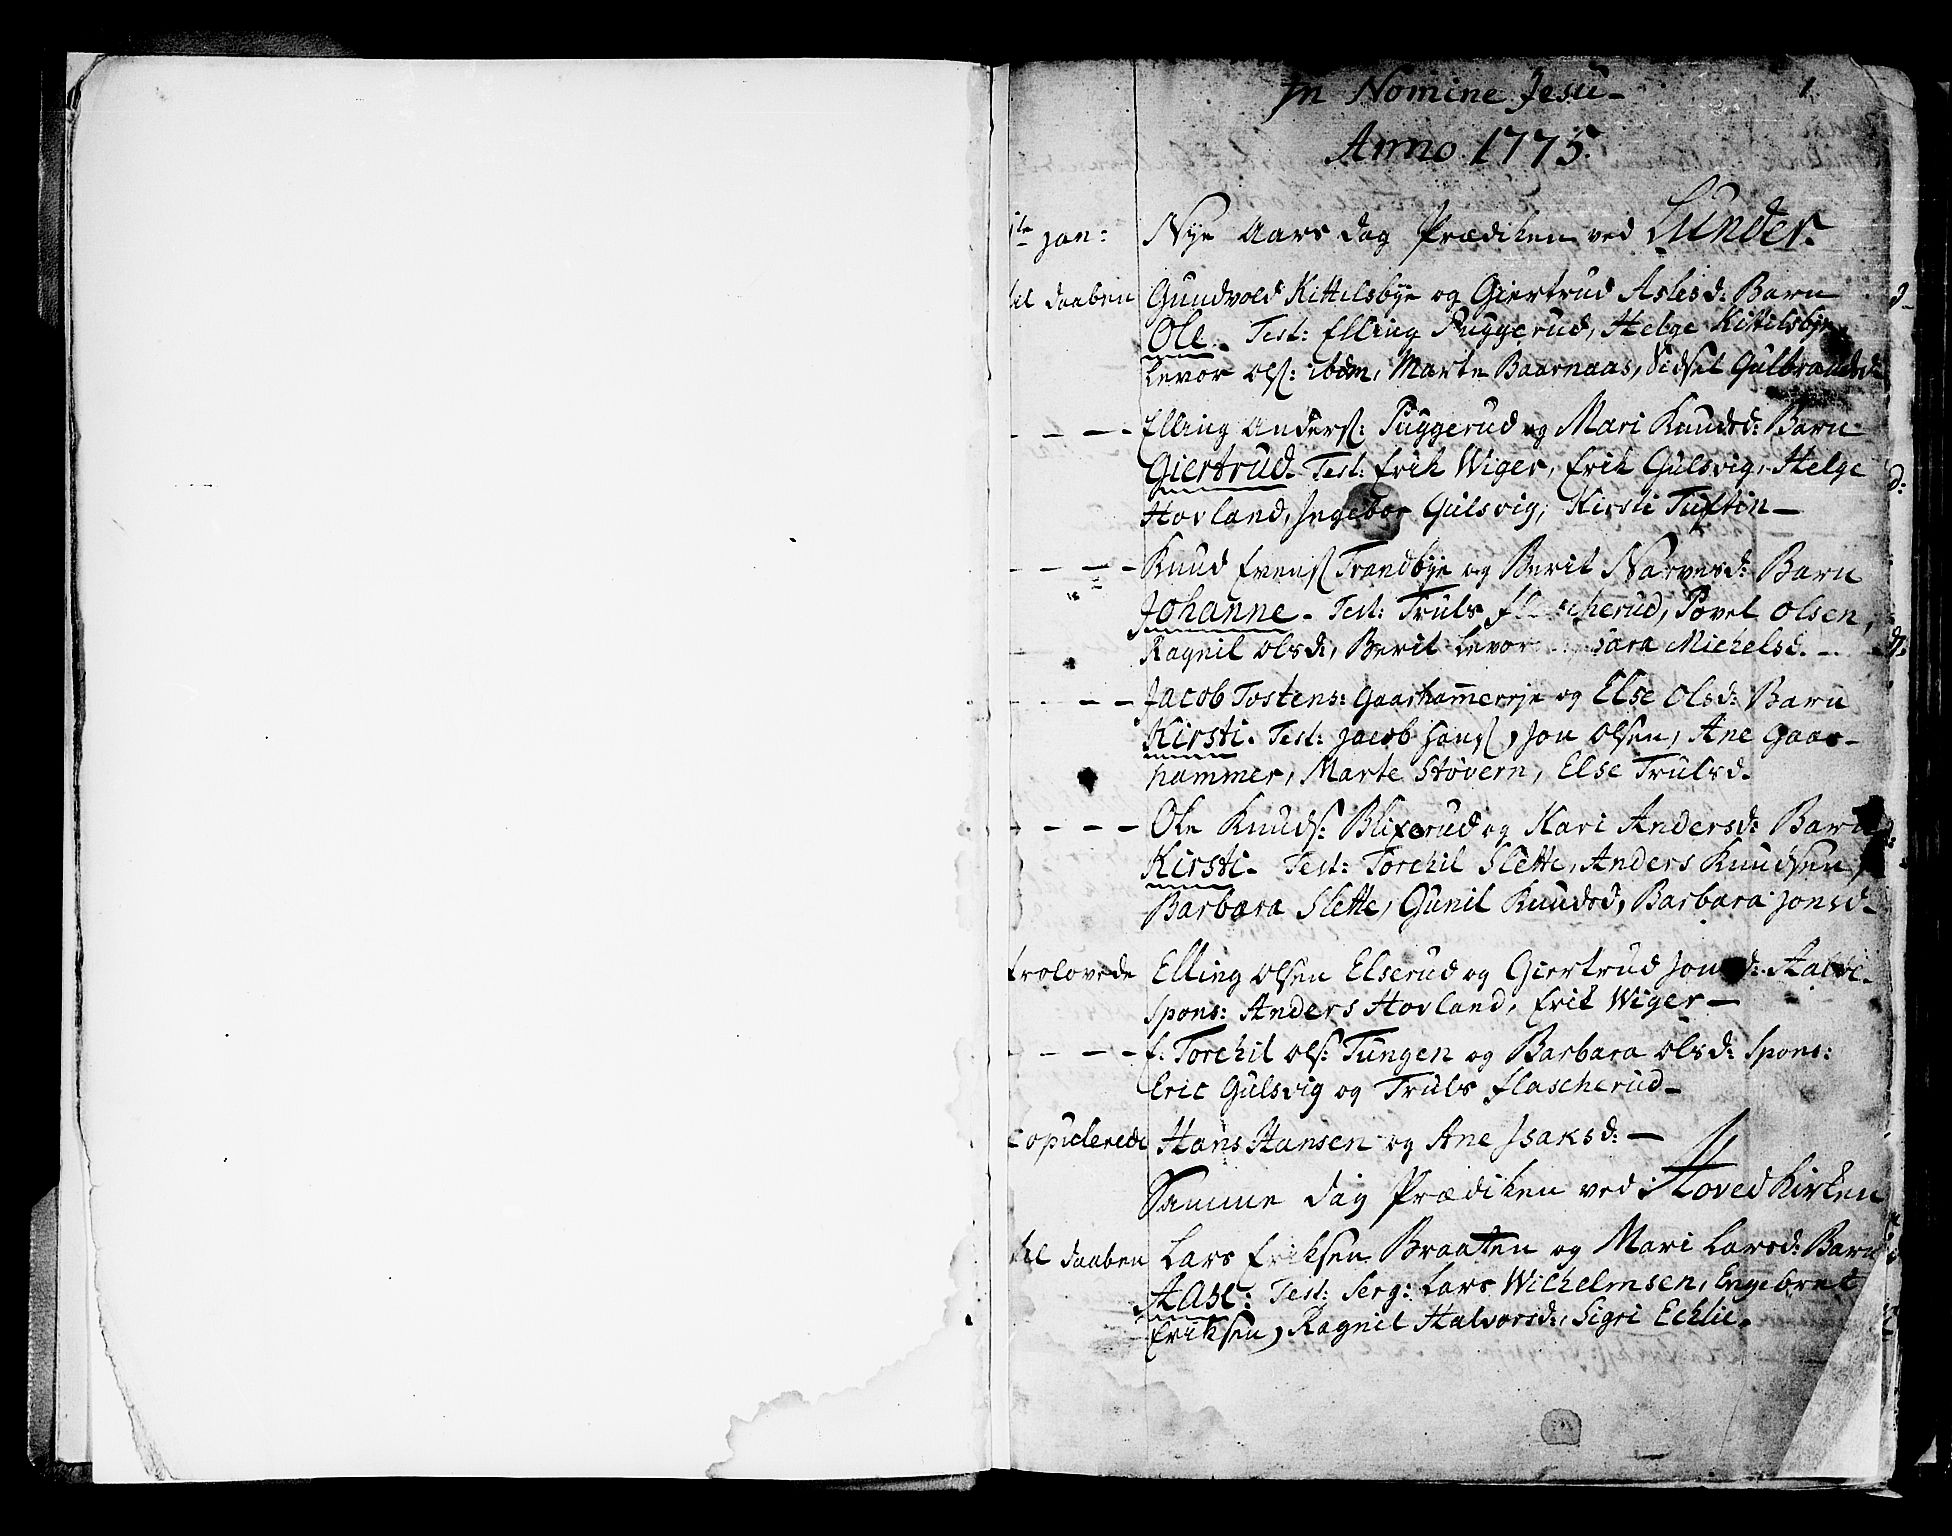 In Nomine Jesu 1
Anno 1775.
1te Jan: Nye Aars Dag Prædiken ved Lunder.
til daaben Gundvold Kittilsbye og Giertrud Aslesd: Barn
Ole. Test: Elling Puggerud, Helge Kittilsbye,
Levor Ols: ibdm, Marte Baarnaas, Sidsel Gulbrandsd.
- - - - Elling Anders: Puggerud og Mari Knudsd: Barn
Giertrud. Test: Erik Wiger, Erik Gulsvig, Helge
Hovland, Ingebor Gulsvig, Kirsti Tuftin -
- - - - Knud Evens: Trandbye og Berit Narvesd: Barn
Johanne. Test: Truls Flascherud, Povel Olsen,
Ragnil Olsd:, Berit Levor Sara Michelsd.
- - - - Jacob Tostens: Gaarhammereje og Else Olsd: Barn
Kirsti. Test: Jacob Hans:, Jon Olsen, Ane Gaar-
hammer, Marte Støvern, Else Trulsd.
- - - - Ole Knuds: Blixerud og Kari Andersd: Barn
Kirsti. Test: Torchil Slette, Anders Knudsen,
Barbara Slette, Gunil Knudsd, Barbara Jonsd.
trolovede Elling Olsen Elserud og Giertrud Jonsd:
Spons: Anders Hovland, Erik Wiger -
- - - - f. Torchil Ols: Tungen og Barbara Olsd: Spons:
Eric Gulsvig og Truls Flascherud -
Copulerede Hans Hansen og Ane Isaksd: -
Samme Dag Prædiken ved Hoved Kirken
til daaben Lars Eriksen Braaten og Mari Larsd: Barn
Aase: Test: Serg: Lars Wilhelmsen, Engebret
Eriksen, Ragnil Halvorsd:, Sigri Echlie.